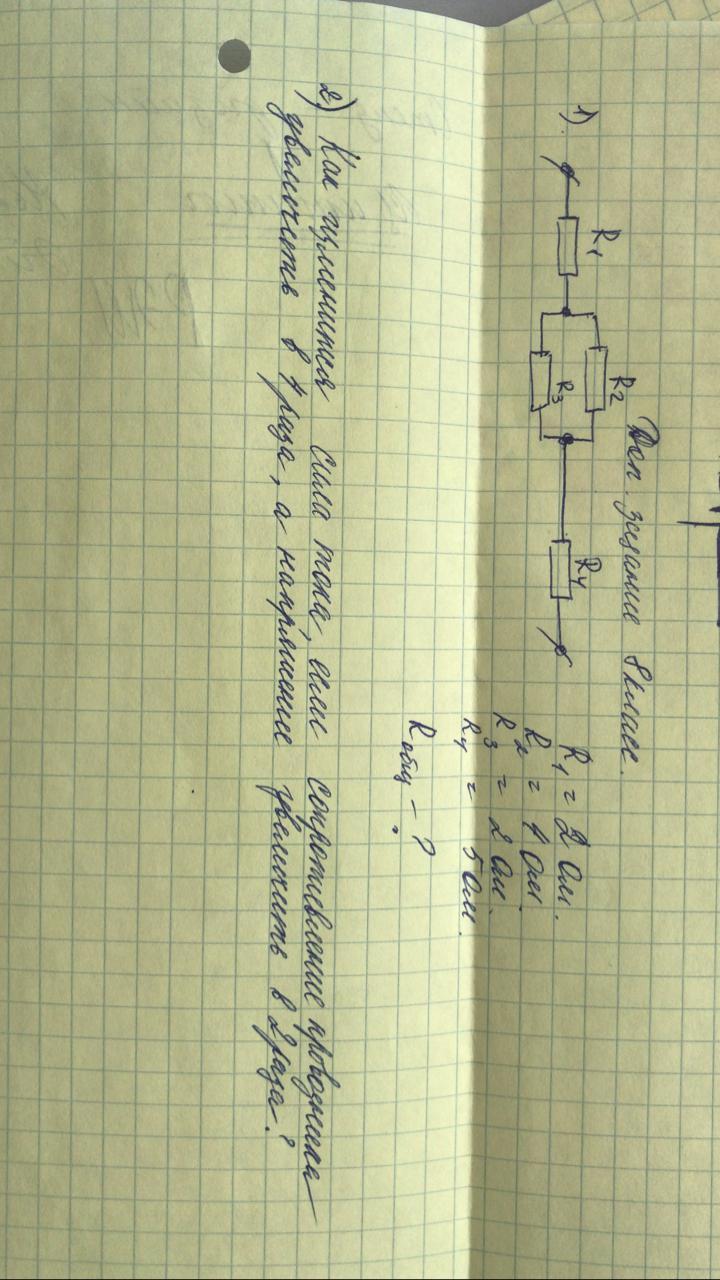 Доп. задание 8 класс.
1).
R1
R2
R3
R4
R1 = 2 Ом.
R2 = 4 Ом.
R3 = 2 Ом.
R4 = 5 Ом.
Rобщ - ?
2) Как изменится сила тока, если сопротивление проводника
увеличить в 4 раза, а напряжение увеличить в 2 раза?